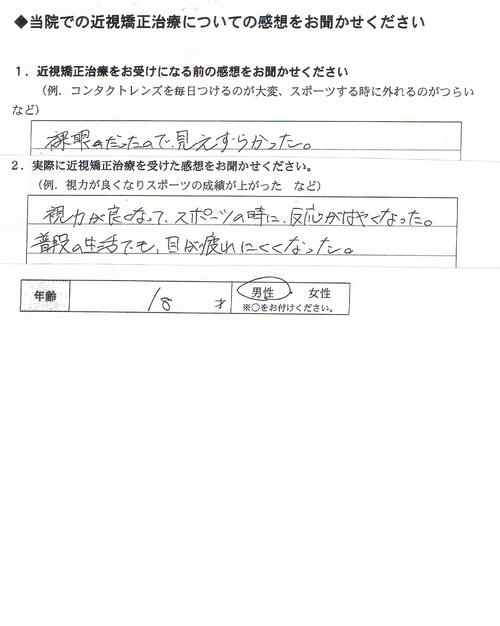 ◆当院での近視矯正治療についての感想をお聞かせください
１．近視矯正治療をお受けになる前の感想をお聞かせください
（例．コンタクトレンズを毎日つけるのが大変、スポーツする時に外れるのがつらい
など）
裸眼のだったので、見えずらかった。
２．実際に近視矯正治療を受けた感想をお聞かせください。
（例．視力が良くなりスポーツの成績が上がった　など）
視力が良くなって、スポーツの時に、反応がはやくなった。
普段の生活でも、目が疲れにくくなった。
年齢 18 才 男性 ・ 女性
※○をお付けください。